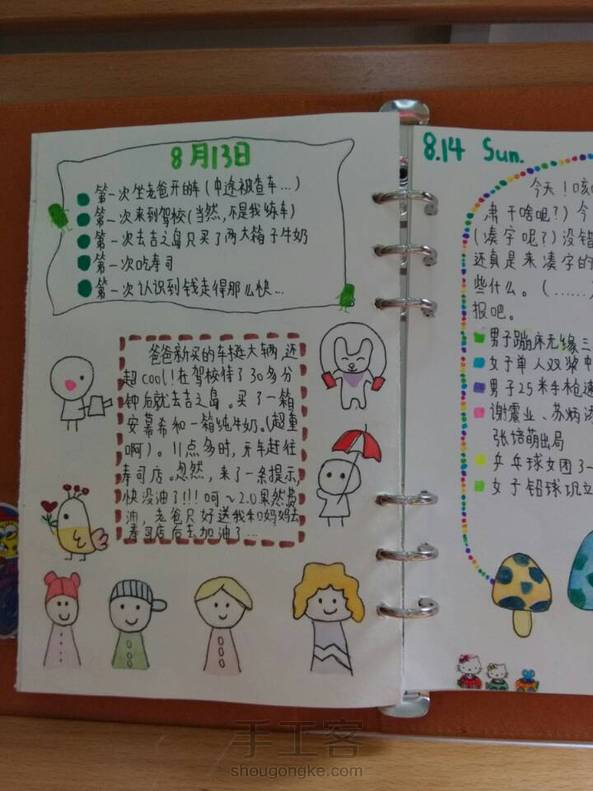 8月13日
第一次坐老爸开的车(中途被查车...)
第一次来到驾校(当然,不是我练车)
第一次去吉之岛只买了两大箱子牛奶
第一次吃寿司
第一次认识到钱走得那么快...
爸爸新买的车挺大辆,还
超cool!在驾校待了30多分
钟后就去吉之岛。买了一箱
安慕希和一箱纯牛奶。(超重
啊)。11点多时,开车赶往
寿司店。忽然,来了一条提示,
快没油了!!!呵~2.0果然费
油,老爸只好送我和妈妈去
寿司店后去加油了...
8.14 Sun.
今天!咳
肃干啥呢?)今
(凑字呢?)没错
还真是来凑字的
些什么。(......)
报吧。
男子蹦床无缘三
女子单人双桨中
男子25米手枪速
谢震业、苏炳添
张培萌出局
乒乓球女团3-
女子铅球巩立
手工客
shougongke.com